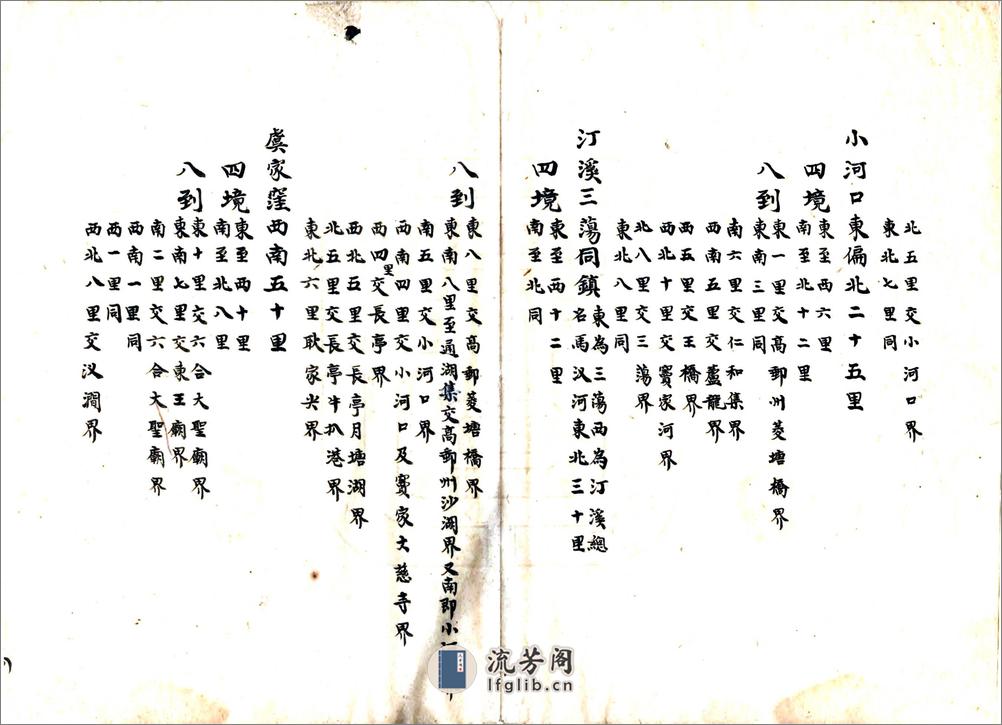 北五里交小河口界
東北七里同
小河口東偏北二十五里
四境
東至西六里
南至北十二里
八到
東一里交高郵州菱塘橋界
東南三里同
南六里交仁和集界
西南五里交蘆龍界
西五里交王橋界
西北十里交竇家河界
北八里交三蕩界
東北八里同
汀溪三蕩同鎮
東為三蕩西為汀溪總
名馬汊河東北三十里
四境
東至西十二里
南至北同
八到
東八里交高郵菱塘橋界
東南八里至通湖集交高郵州沙湖界又南即小
南五里交小河口界
西南四里交小河口及竇家大慈寺界
西四里交長亭界
西北五里交長亭月塘湖界
北五里交長亭牛扒港界
東北六里耿家尖界
虞家窪西南五十里
四境
東至西十里
南至北八里
八到
東十里交六合大聖廟界
東南七里交東王廟界
南二里交六合大聖廟界
西南一里同
西一里同
西北八里交汊澗界
流芳阁
lfglib.cn